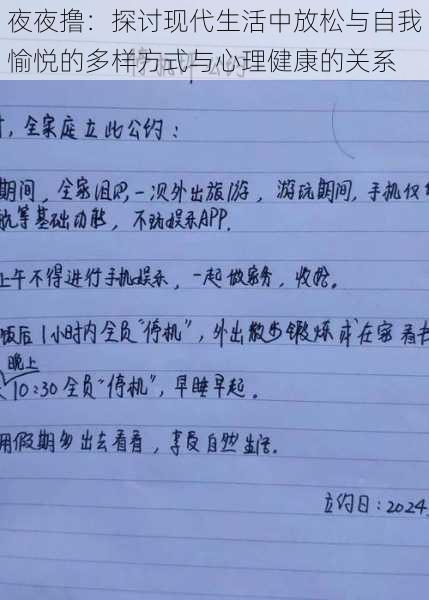 夜夜撸：探讨现代生活中放松与自我
愉悦的多样方式与心理健康的关系
，全家庭立此公约：
期间，全家组织一次外出旅游，游玩期间，手机仅
航等基础功能，不玩娱乐APP.
上午不得进行手机娱乐，一起做家务，收拾。
饭后1小时内全员“停机”，外出散步锻炼或在家看书
晚上
10:30全员“停机”，早睡早起。
用假期多出去看看，享受自然生活。
立约日：2024